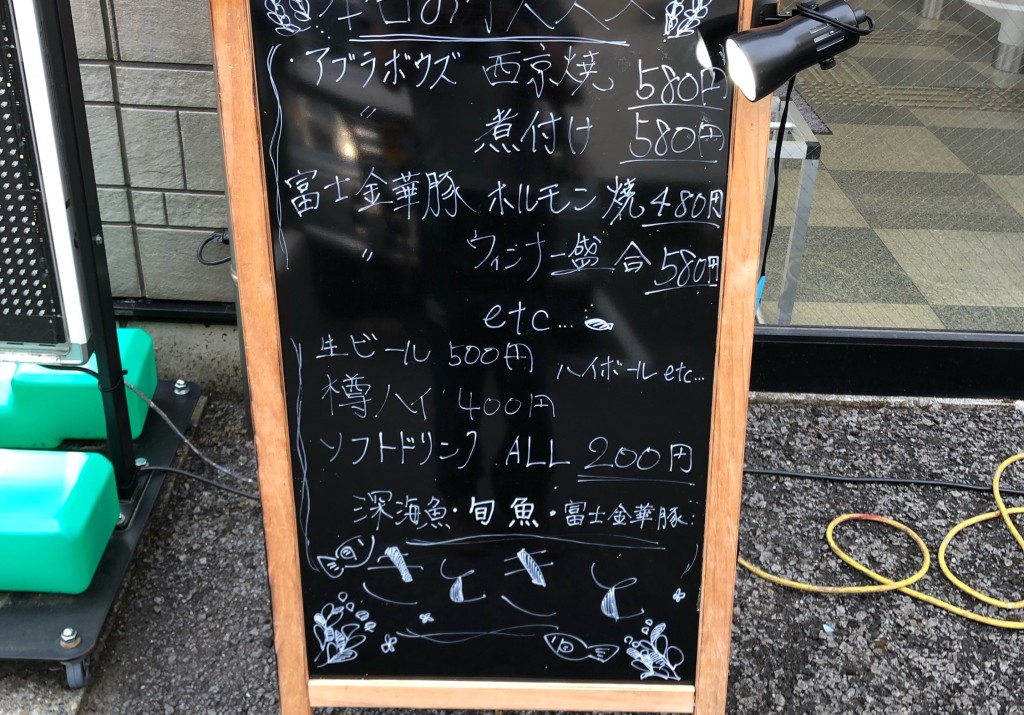 本日のオススメ
・アブラボウズ 西京焼 580円
〃 煮付け 580円
富士金華豚 ホルモン焼 480円
〃 ウィンナー盛合 580円
etc...
生ビール 500円 ハイボール etc...
樽ハイ 400円
ソフトドリンク ALL 200円
深海魚・旬魚・富士金華豚